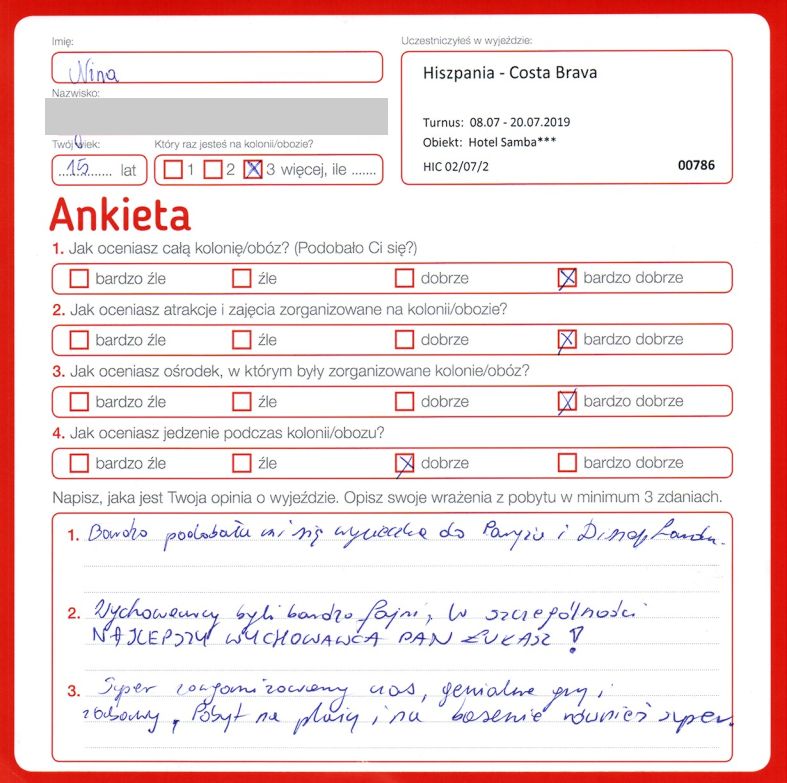 Imię:
Nina
Nazwisko:
Twój wiek:
15 lat
Który raz jesteś na kolonii/obozie?
1 2 3 więcej, ile .......
Uczestniczyłeś w wyjeździe:
Hiszpania - Costa Brava
Turnus: 08.07 - 20.07.2019
Obiekt: Hotel Samba***
HIC 02/07/2 00786
Ankieta
1. Jak oceniasz całą kolonię/obóz? (Podobało Ci się?)
bardzo źle źle dobrze bardzo dobrze
2. Jak oceniasz atrakcje i zajęcia zorganizowane na kolonii/obozie?
bardzo źle źle dobrze bardzo dobrze
3. Jak oceniasz ośrodek, w którym były zorganizowane kolonie/obóz?
bardzo źle źle dobrze bardzo dobrze
4. Jak oceniasz jedzenie podczas kolonii/obozu?
bardzo źle źle dobrze bardzo dobrze
Napisz, jaka jest Twoja opinia o wyjeździe. Opisz swoje wrażenia z pobytu w minimum 3 zdaniach.
1. Bardzo podobała mi się wycieczka do Paryża i Disneylandu.
2. Wychowawcy byli bardzo fajni, w szczególności
NAJLEPSZY WYCHOWAWCA PAN ŁUKASZ!
3. Super zorganizowany czas, genialne gry i
zabawy, Pobyt na plaży i na basenie również super.